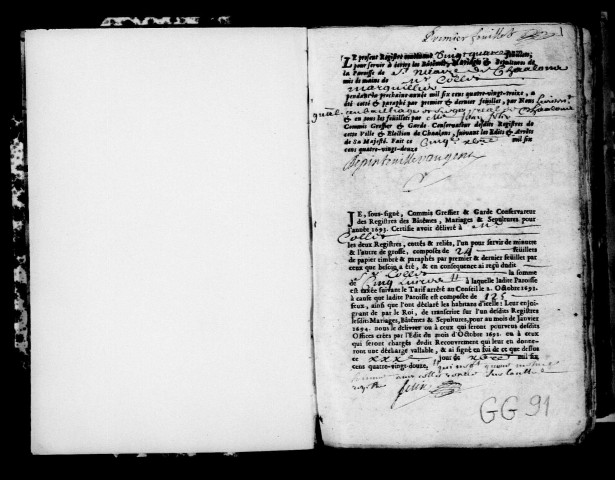 Premier feuillet
LE present Registre contenant vingt quatre feuillets,
pour servir à écrire les Bâtêmes, Mariages & Sepultures de
la Paroisse de St Nicaise de Chaalons
mis és mains de Mr Collet
marguillier
pendant la prochaine année mil six cens quatre-vingt-treize, a
été cotté & paraphé par premier & dernier feuillet, par Nous
& en tous les feuillets par Me Jean felix
Commis Greffier & Garde Conservateur desdits Registres de
cette Ville & Election de Chaalons, suivant les Edits & Arrêts
de Sa Majesté. Fait ce cinqe xbre mil six
cens quatre-vingt-douze
JE, sous-signé, Commis Greffier & Garde Conservateur
des Registres des Bâtêmes, Mariages & Sepultures pour
l'année 1693. Certifie avoir délivré à Mr
Collet
les deux Registres, cottés & reliés, l'un pour servir de minute
& l'autre de grosse, composés de 24 feuillets
de papier timbré & paraphés par premier & dernier feuillet par
ceux que besoin a été, & en consequence ai reçû dudit
Sr Collet la somme
de Cinq Livres à laquelle ladite Paroisse
est taxée suivant le Tarif arrêté au Conseil le 2. Octobre 1691.
à cause que ladite Paroisse est composée de 125
feux, ainsi que l'ont déclaré les habitans d'icelle : Leur enjoignant
de par le Roi, de transcrire sur l'un desdits Registres
lesdits Mariages, Bâtêmes & Sepultures, pour au mois de Janvier
1694. nous le délivrer ou à ceux qui seront pourveus desdits
Offices créez par l'Edit du mois d'Octobre 1691. ou à ceux
qui seront chargés dudit Recouvrement qui leur en donneront
une décharge vallable, & ai signé en foi de ce que dessus
ce xxxe jour de xbre mil six
cens quatre-vingt-douze,
felix
GG 91